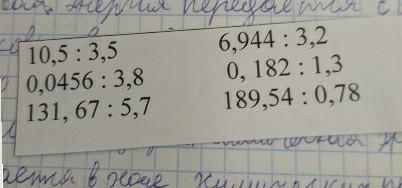 энергия передается с
10,5 : 3,5
0,0456 : 3,8
131, 67 : 5,7
6,944 : 3,2
0, 182 : 1,3
189,54 : 0,78
в ходе